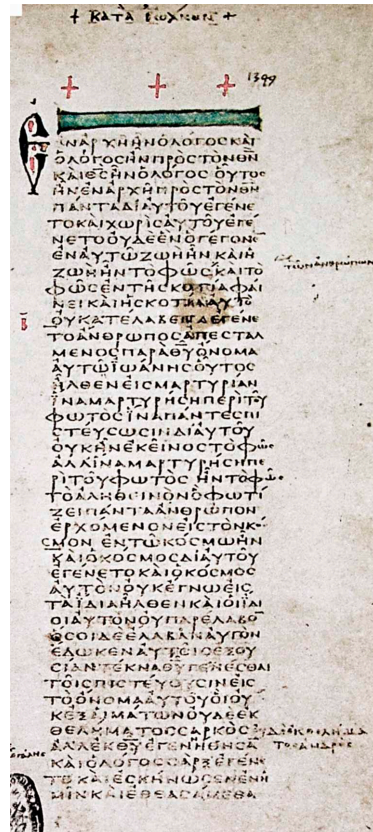 + ΚΑΤΑ ΙΩΑΝΗΝ +
1349
ΕΝΑΡΧΗΗΝΟΛΟΓΟΣΚΑΙ
ΟΛΟΓΟΣΗΝΠΡΟΣΤΟΝΘΝ
ΚΑΙΘΣΗΝΟΛΟΓΟΣ ΟΥΤΟΣ
ΗΝΕΝΑΡΧΗΠΡΟΣΤΟΝΘΝ
ΠΑΝΤΑΔΙΑΥΤΟΥΕΓΕΝΕ
ΤΟΚΑΙΧΩΡΙΣΑΥΤΟΥΕΓΕ
ΝΕΤΟΟΥΔΕΕΝΟΓΕΓΟΝΕ
ΕΝΑΥΤΩΖΩΗΗΝΚΑΙΗ
ΖΩΗΗΝΤΟΦΩΣΚΑΙΤΟ
ΤΩΝΑΝΘΡΩΠΩΝ
ΦΩΣΕΝΤΗΣΚΟΤΙΑΦΑΙ
ΝΕΙΚΑΙΗΣΚΟΤΙΑΑΥΤΟ
ΟΥΚΑΤΕΛΑΒΕΝΕΓΕΝΕ
ΤΟΑΝΘΡΩΠΟΣΑΠΕΣΤΑΛ
ΜΕΝΟΣΠΑΡΑΘΥΟΝΟΜΑ
ΑΥΤΩΙΩΑΝΗΣΟΥΤΟΣ
ΗΛΘΕΝΕΙΣΜΑΡΤΥΡΙΑΝ
ΙΝΑΜΑΡΤΥΡΗΣΗΠΕΡΙΤΟΥ
ΦΩΤΟΣΙΝΑΠΑΝΤΕΣΠΙ
ΣΤΕΥΣΩΣΙΝΔΙΑΥΤΟΥ
ΟΥΚΗΝΕΚΕΙΝΟΣΤΟΦΩΣ
ΑΛΛΙΝΑΜΑΡΤΥΡΗΣΗΠΕ
ΡΙΤΟΥΦΩΤΟΣ ΗΝΤΟΦΩΣ
ΤΟΑΛΗΘΕΙΝΟΝΟΦΩΤΙ
ΖΕΙΠΑΝΤΑΑΝΘΡΩΠΟΝ
ΕΡΧΟΜΕΝΟΝΕΙΣΤΟΝΚΟ
ΣΜΟΝ ΕΝΤΩΚΟΣΜΩΗΝ
ΚΑΙΟΚΟΣΜΟΣΔΙΑΥΤΟΥ
ΕΓΕΝΕΤΟΚΑΙΟΚΟΣΜΟΣ
ΑΥΤΟΝΟΥΚΕΓΝΩΕΙΣ
ΤΑΙΔΙΑΗΛΘΕΝΚΑΙΟΙΙΔΙ
ΟΙΑΥΤΟΝΟΥΠΑΡΕΛΑΒΟ
ΟΣΟΙΔΕΕΛΑΒΑΝΑΥΤΟΝ
ΕΔΩΚΕΝΑΥΤΟΙΣΕΞΟΥ
ΣΙΑΝΤΕΚΝΑΘΥΓΕΝΕΣΘΑΙ
ΤΟΙΣΠΙΣΤΕΥΟΥΣΙΝΕΙΣ
ΤΟΟΝΟΜΑΑΥΤΟΥΟΙΟΥ
ΚΕΞΑΙΜΑΤΩΝΟΥΔΕΕΚ
ΘΕΛΗΜΑΤΟΣΣΑΡΚΟΣ
ΟΥΔΕΕΚΘΕΛΗΜΑ
ΤΟΣΑΝΔΡΟΣ
ΑΛΛΕΚΘΥΕΓΕΝΗΘΗΣΑ
ΚΑΙΟΛΟΓΟΣΣΑΡΞΕΓΕΝΕ
ΤΟΚΑΙΕΣΚΗΝΩΣΕΝΕΝΗ
ΜΙΝΚΑΙΕΘΕΑΣΑΜΕΘΑ